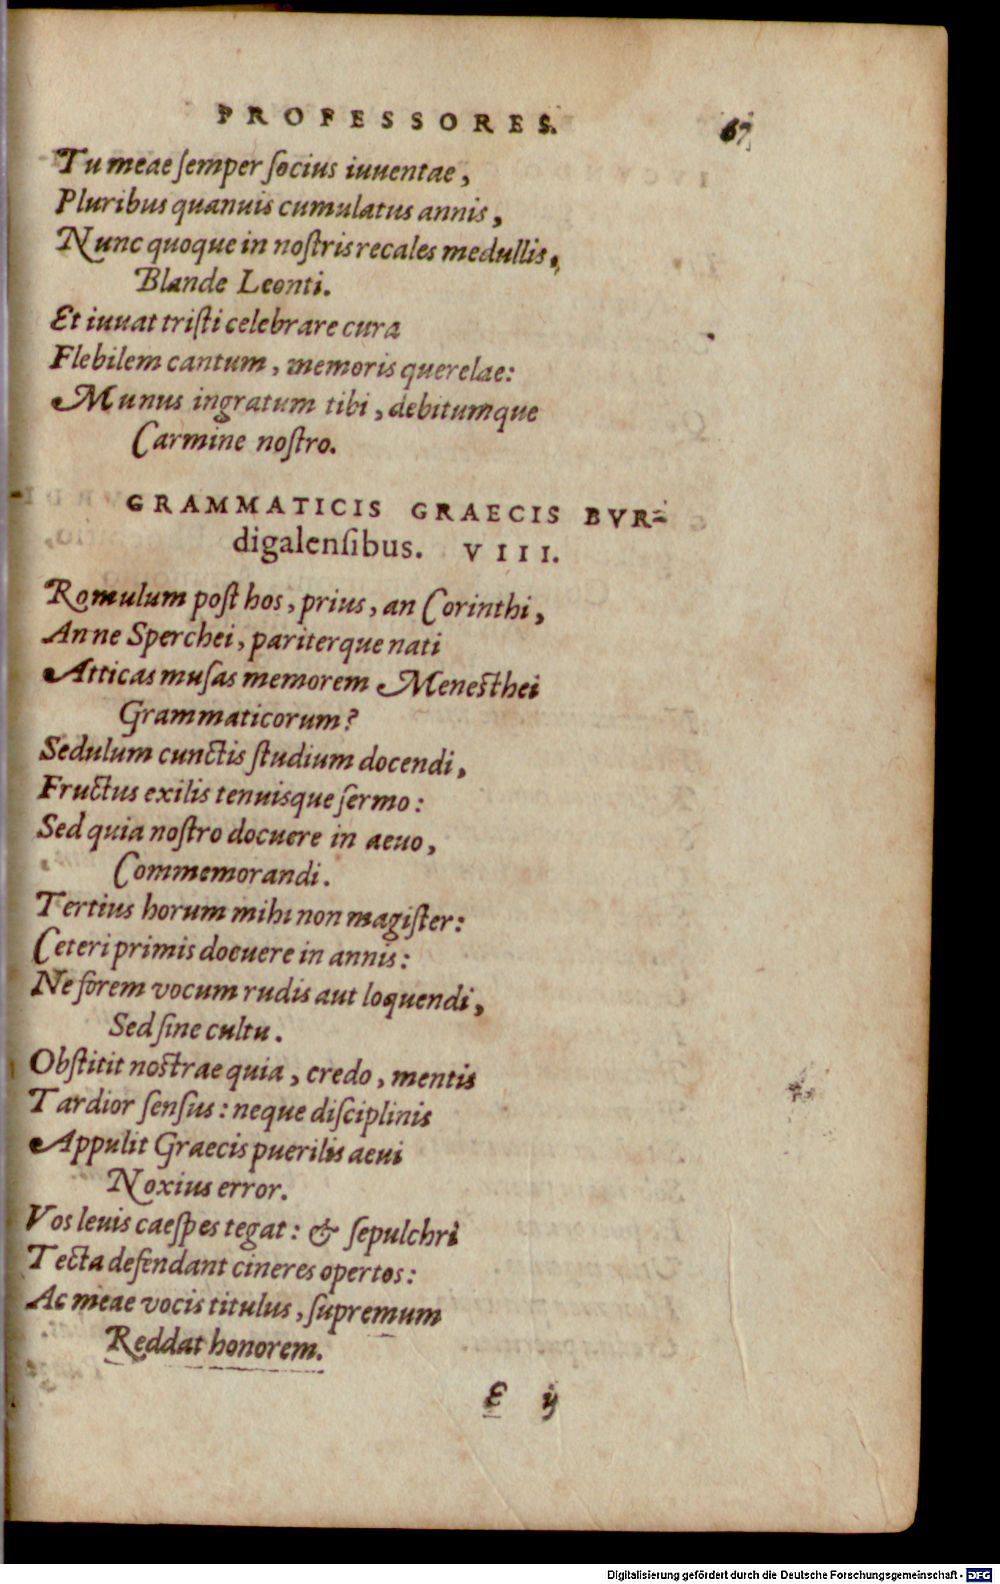 PROFESSORES. 67
Tu meae semper socius iuuentae,
Pluribus quanuis cumulatus annis,
Nunc quoque in nostris recales medullis,
Blande Leonti.
Et iuuat tristi celebrare cura
Flebilem cantum, memoris querelae:
Munus ingratum tibi, debitumque
Carmine nostro.
GRAMMATICIS GRAECIS BVR-
digalensibus. VIII.
Romulum post hos, prius, an Corinthi,
Anne Sperchei, pariterque nati
Atticas musas memorem Menesthei
Grammaticorum?
Sedulum cunctis studium docendi,
Fructus exilis tenuisque sermo:
Sed quia nostro docuere in aeuo,
Commemorandi.
Tertius horum mihi non magister:
Ceteri primis docuere in annis:
Ne forem vocum rudis aut loquendi,
Sed sine cultu.
Obstitit nostrae quia, credo, mentis
Tardior sensus: neque disciplinis
Appulit Graecis puerilis aeui
Noxius error.
Vos leuis caespes tegat: & sepulchri
Tecta defendant cineres opertos:
Ac meae vocis titulus, supremum
Reddat honorem.
E ij
Digitalisierung gefördert durch die Deutsche Forschungsgemeinschaft - DFG